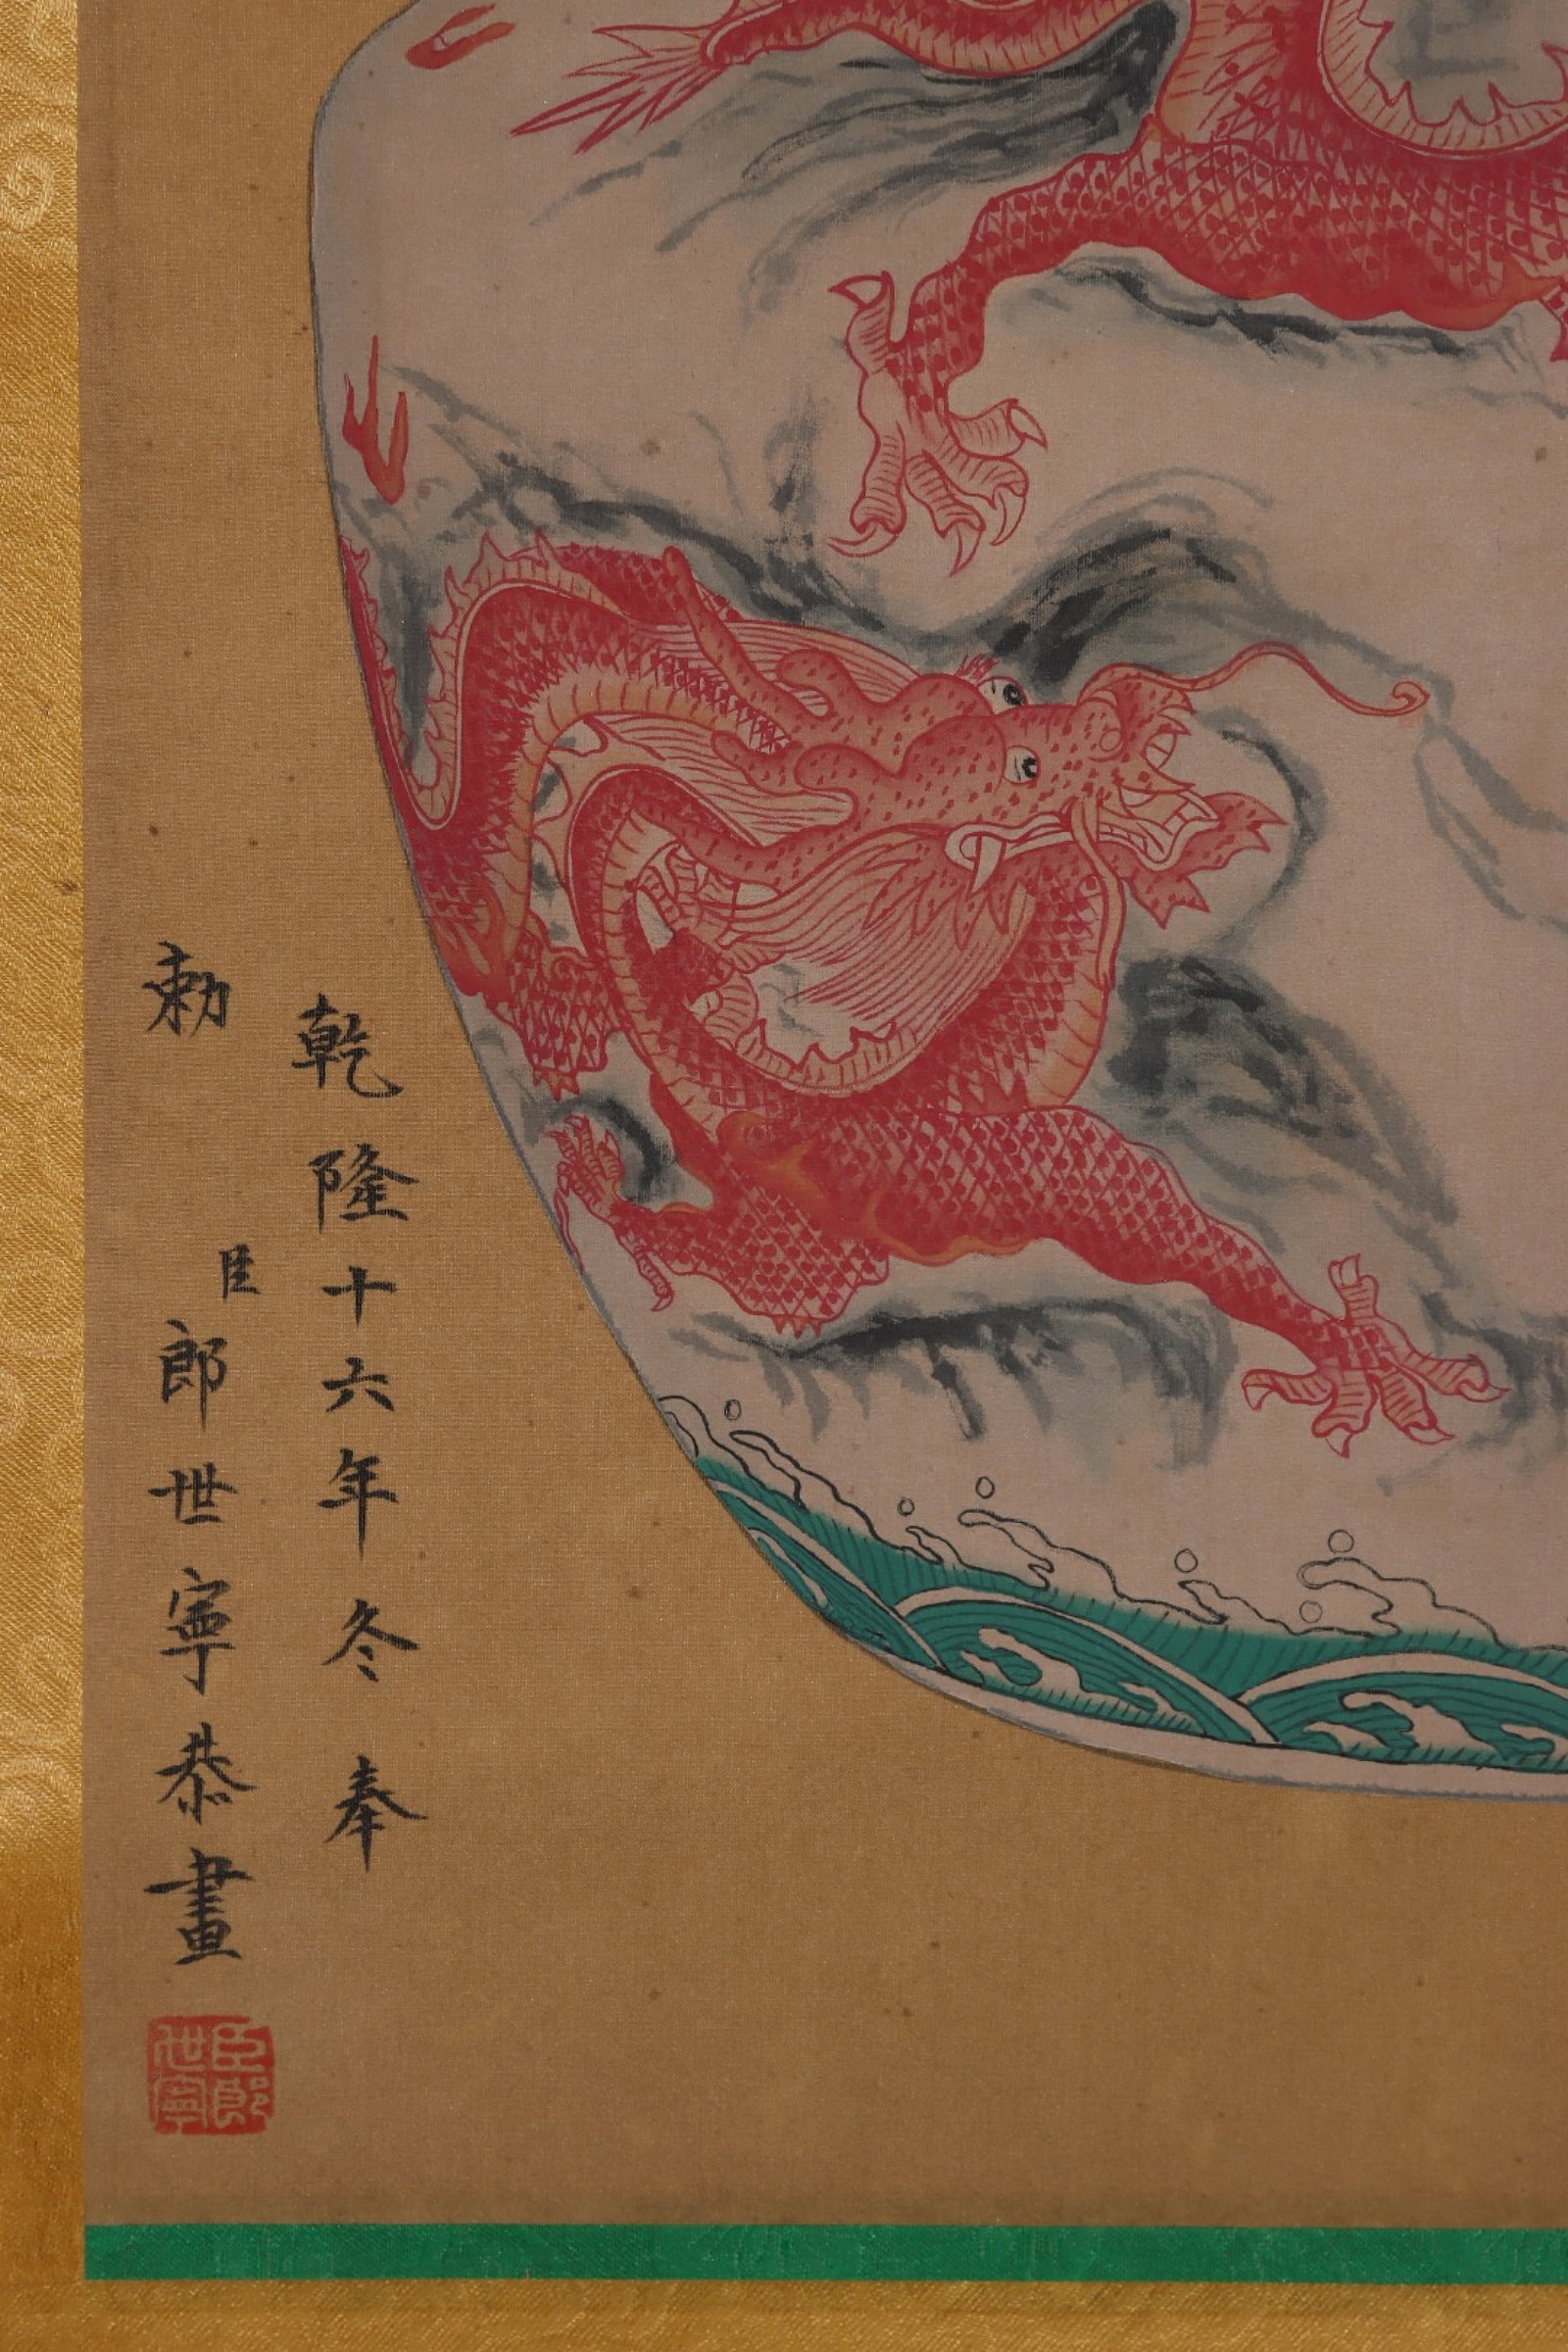 乾隆十六年冬奉
勅
臣郎世寧恭畫
臣郎
世寧